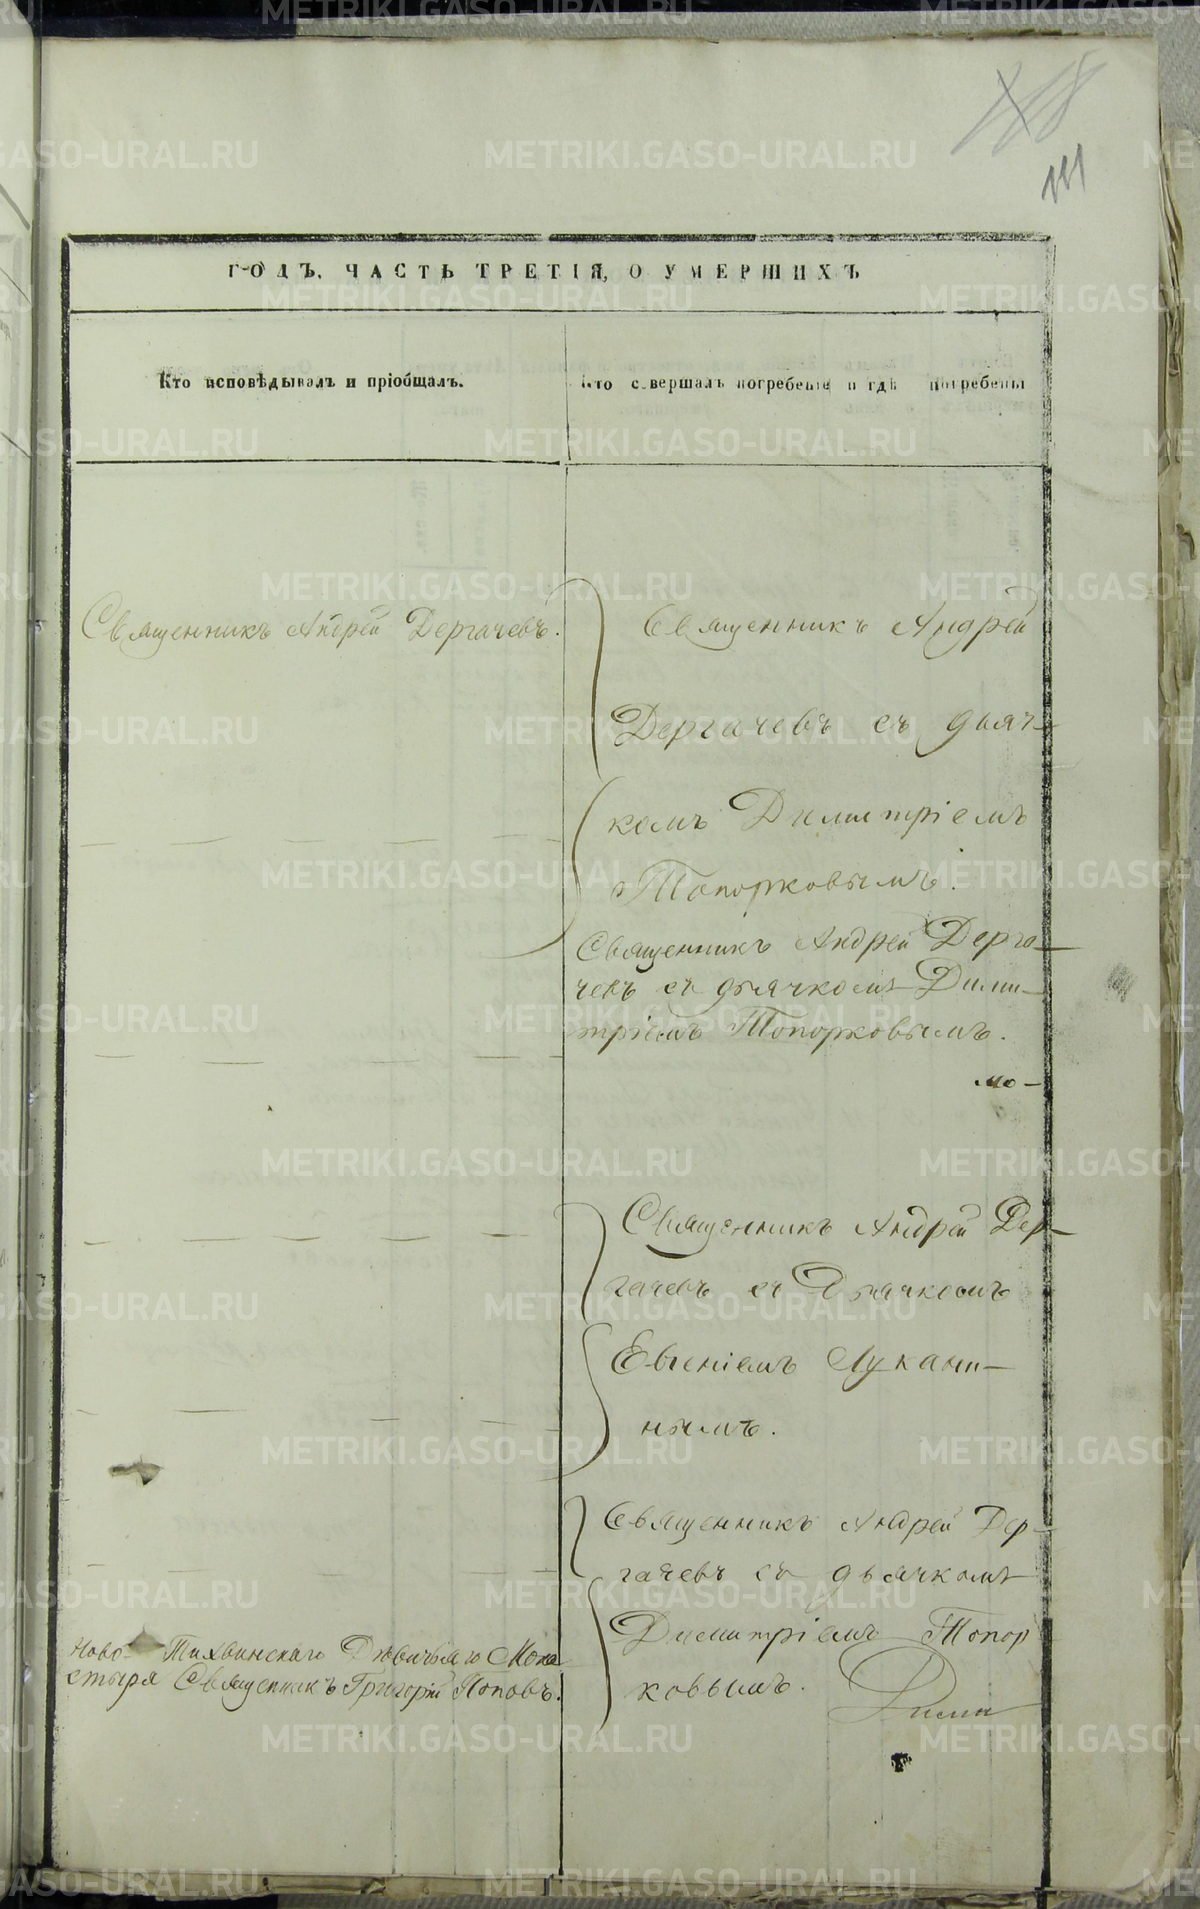 111
ГОДЪ, ЧАСТЬ ТРЕТІЯ, О УМЕРШИХЪ
Кто исповѣдывалъ и пріобщалъ.
Кто совершалъ погребеніе и гдѣ погребены
Священникъ Андрей Дергачевъ.
Священникъ Андрей
Дергачевъ съ дьяч-
комъ Димитріемъ
Топорковымъ.
Священникъ Андрей Дерга-
чевъ съ дьячкомъ Дими-
тріемъ Топорковымъ.
мо-
Священникъ Андрей Дер-
гачевъ съ Дьячкомъ
Евгеніемъ Лукани-
нымъ.
Священникъ Андрей Дер-
гачевъ съ дьячкомъ
Димитріемъ Топор
ковымъ.
Дими
Ново-Тихвинскаго Дѣвичьяго Мона
стыря Священникъ Григорій Поповъ.
METRIKI.GASO-URAL.RU